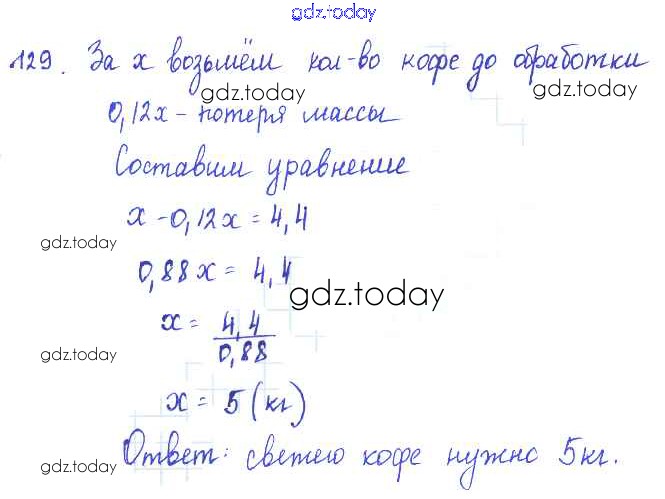 gdz.today
129. За x возьмём кол-во кофе до обработки
gdz.today gdz.today
0,12x - потеря массы
Составим уравнение
x - 0,12x = 4,4
gdz.today
0,88x = 4,4
gdz.today
x = 4,4 / 0,88
gdz.today
x = 5 (кг)
Ответ: светего кофе нужно 5 кг.
gdz.today